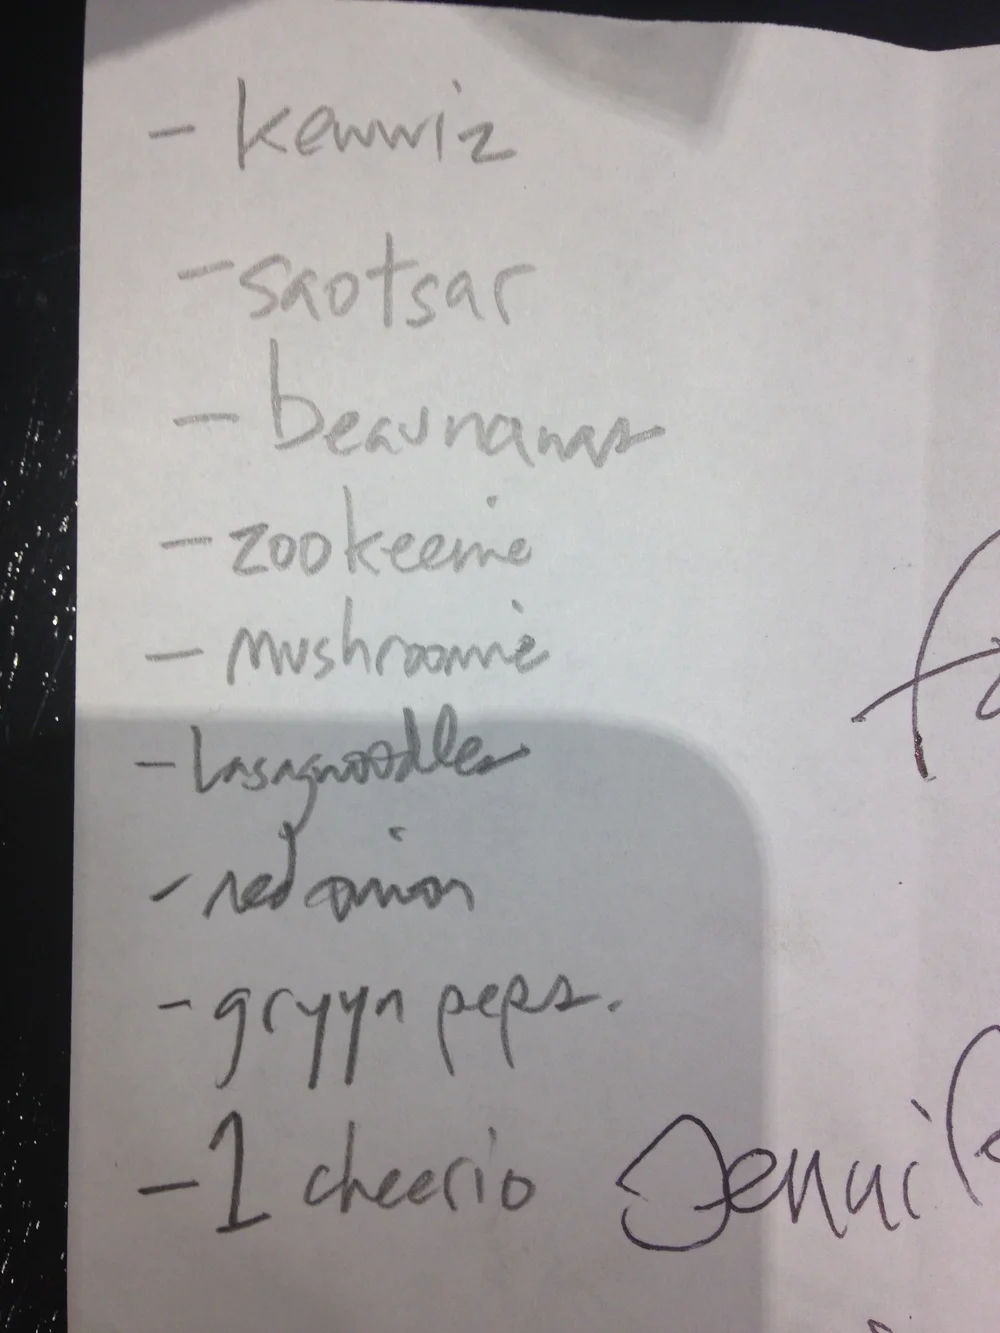 - kewwiz
- saotsar
- beaunanas
- zookeenie
- mushroomie
- lasagnoodles
- red onion
- gryyn peps.
- 1 cheerio